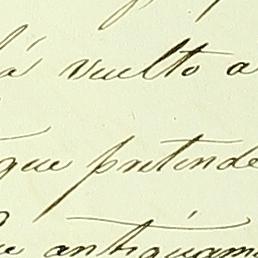 á vuelto a
que pretende
antiguam